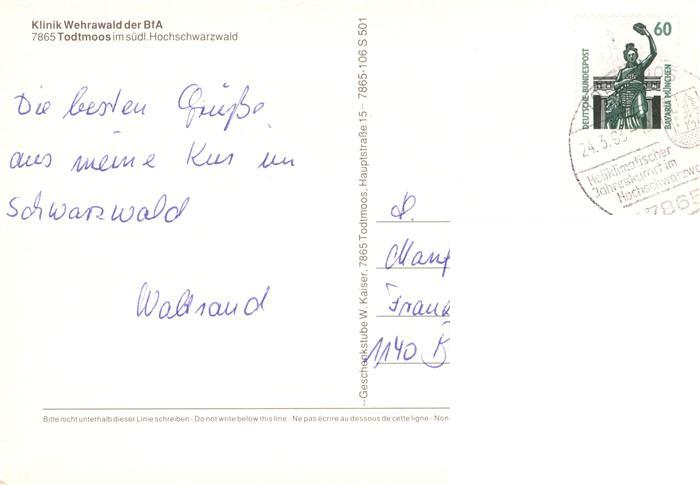 Klinik Wehrawald der BfA
7865 Todtmoos im südl. Hochschwarzwald
Die besten Grüße
aus meine Kur im
Schwarzwald
Waltraud
Geschenkstube W. Kaiser, 7865 Todtmoos, Hauptstraße 15 - 7865-106 S 501
60
DEUTSCHE BUNDESPOST
BAVARIA MÜNCHEN
24.3.
Heilklimatischer
Jahreskurort im
Hochschwarzwa
7865
Frank
1140 B
Bitte nicht unterhalb dieser Linie schreiben - Do not write below this line - Ne pas écrire au dessous de cette ligne - Non